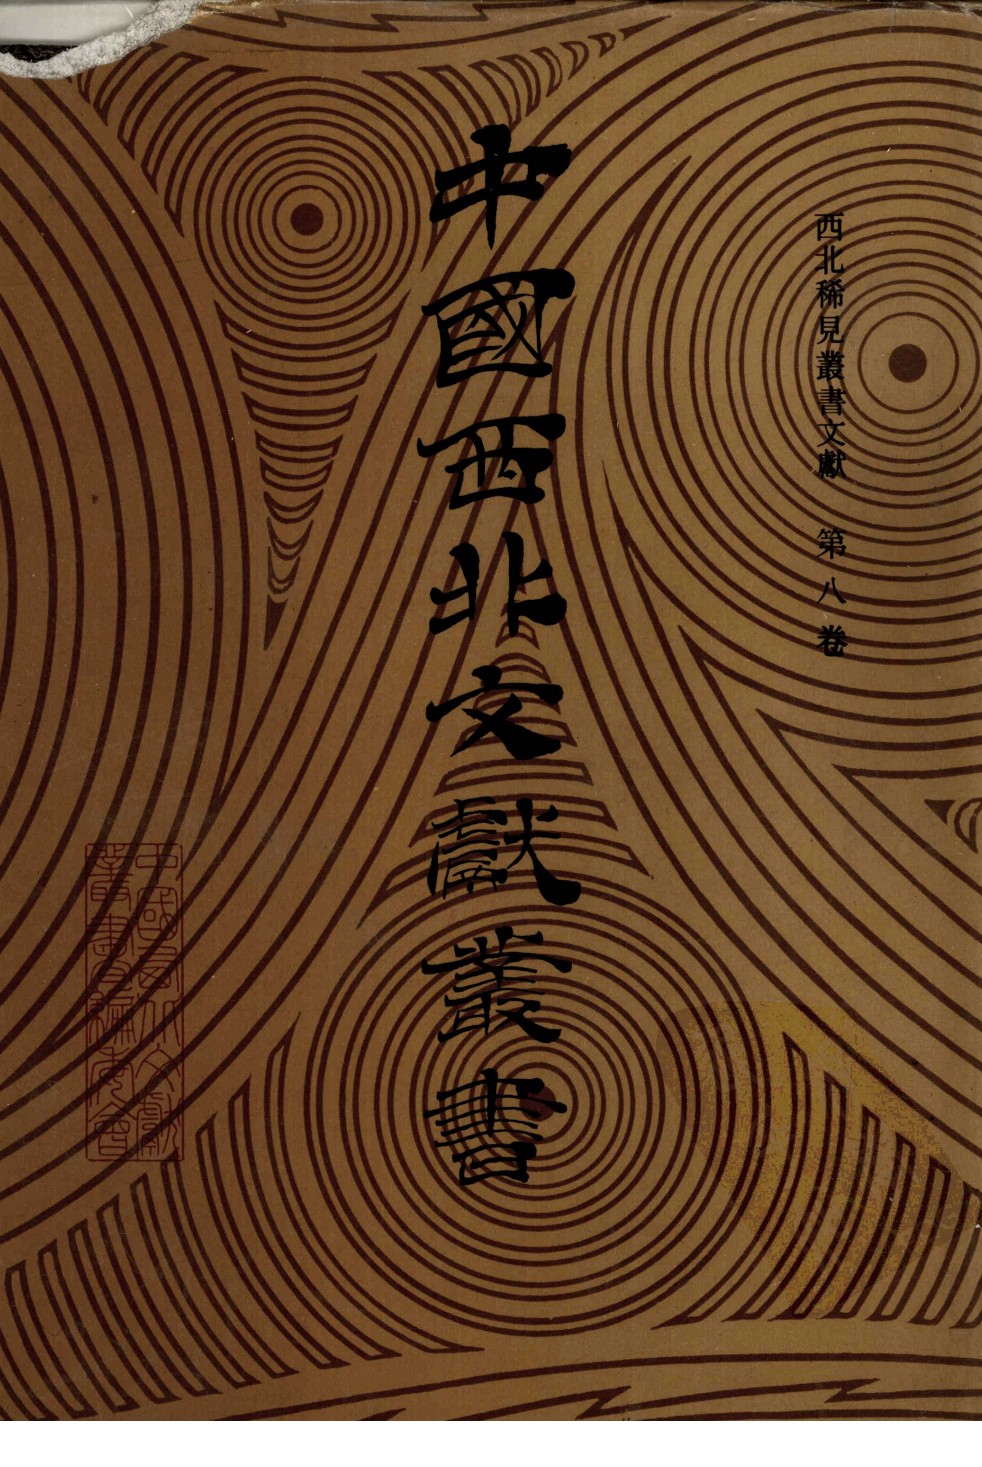 西北稀見叢書文獻 第八卷
中國西北文獻叢書
中國西北文獻
叢書編委會